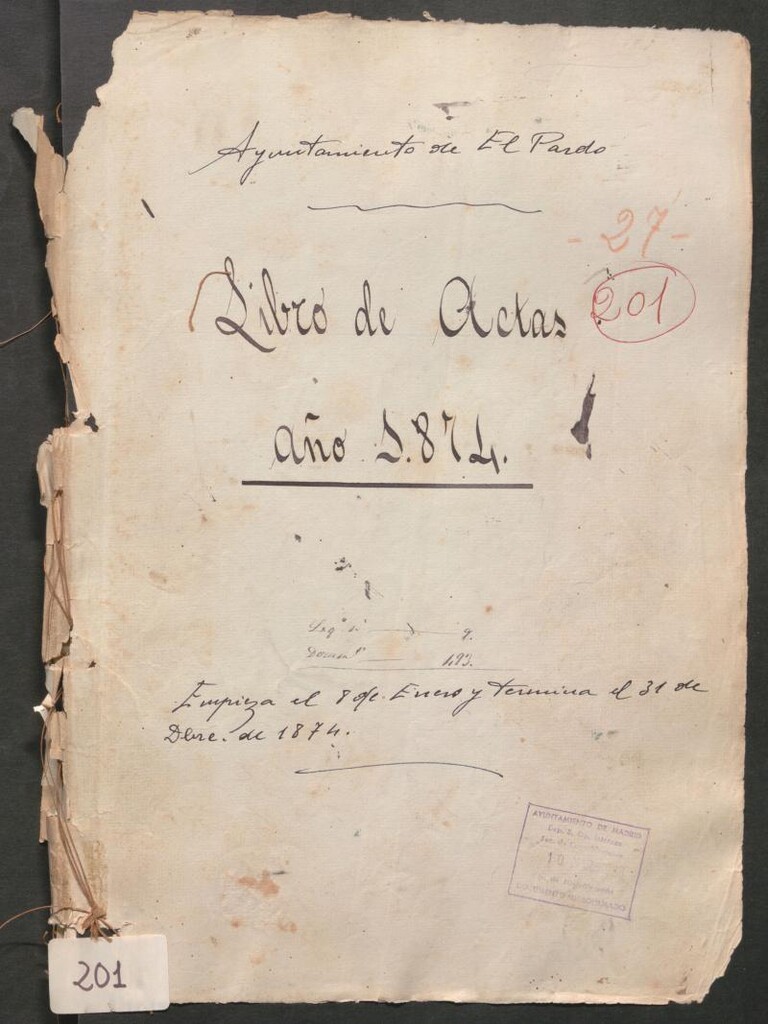 Ayuntamiento de El Pardo
- 27 -
Libro de Actas
201
año 1.874.
Leg.º nº 9.
193.
Empieza el 8 de Enero y termina el 31 de
Dbre. de 1874.
AYUNTAMIENTO DE MADRID
10
201